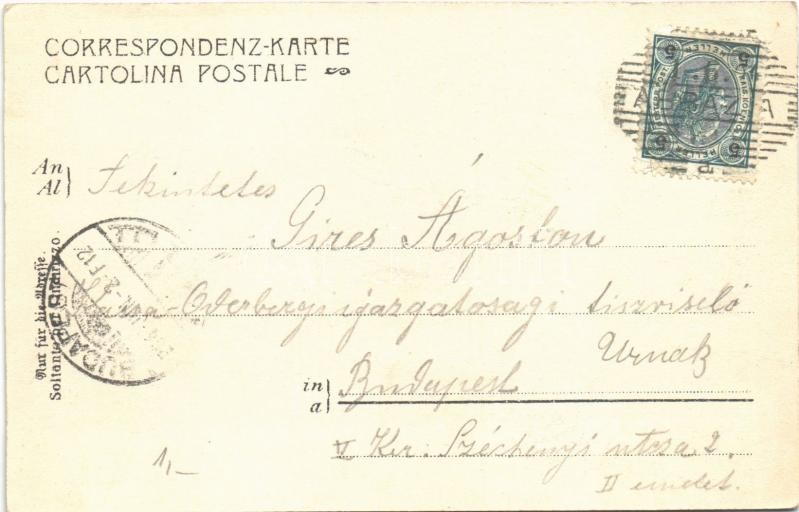 CORRESPONDENZ-KARTE
CARTOLINA POSTALE
5 HELLER 5
ABBAZIA
An
Al
Tekintetes
Gires Ágoston
Kassa-Oderbergi igazgatosagi tiszviselő
Urnak
in
a
Budapest
V Ker. Széchenyi utcza 2.
II emelet.
Nur für die Adresse.
Soltanto per l'indirizzo.
BUDAPEST
1,-